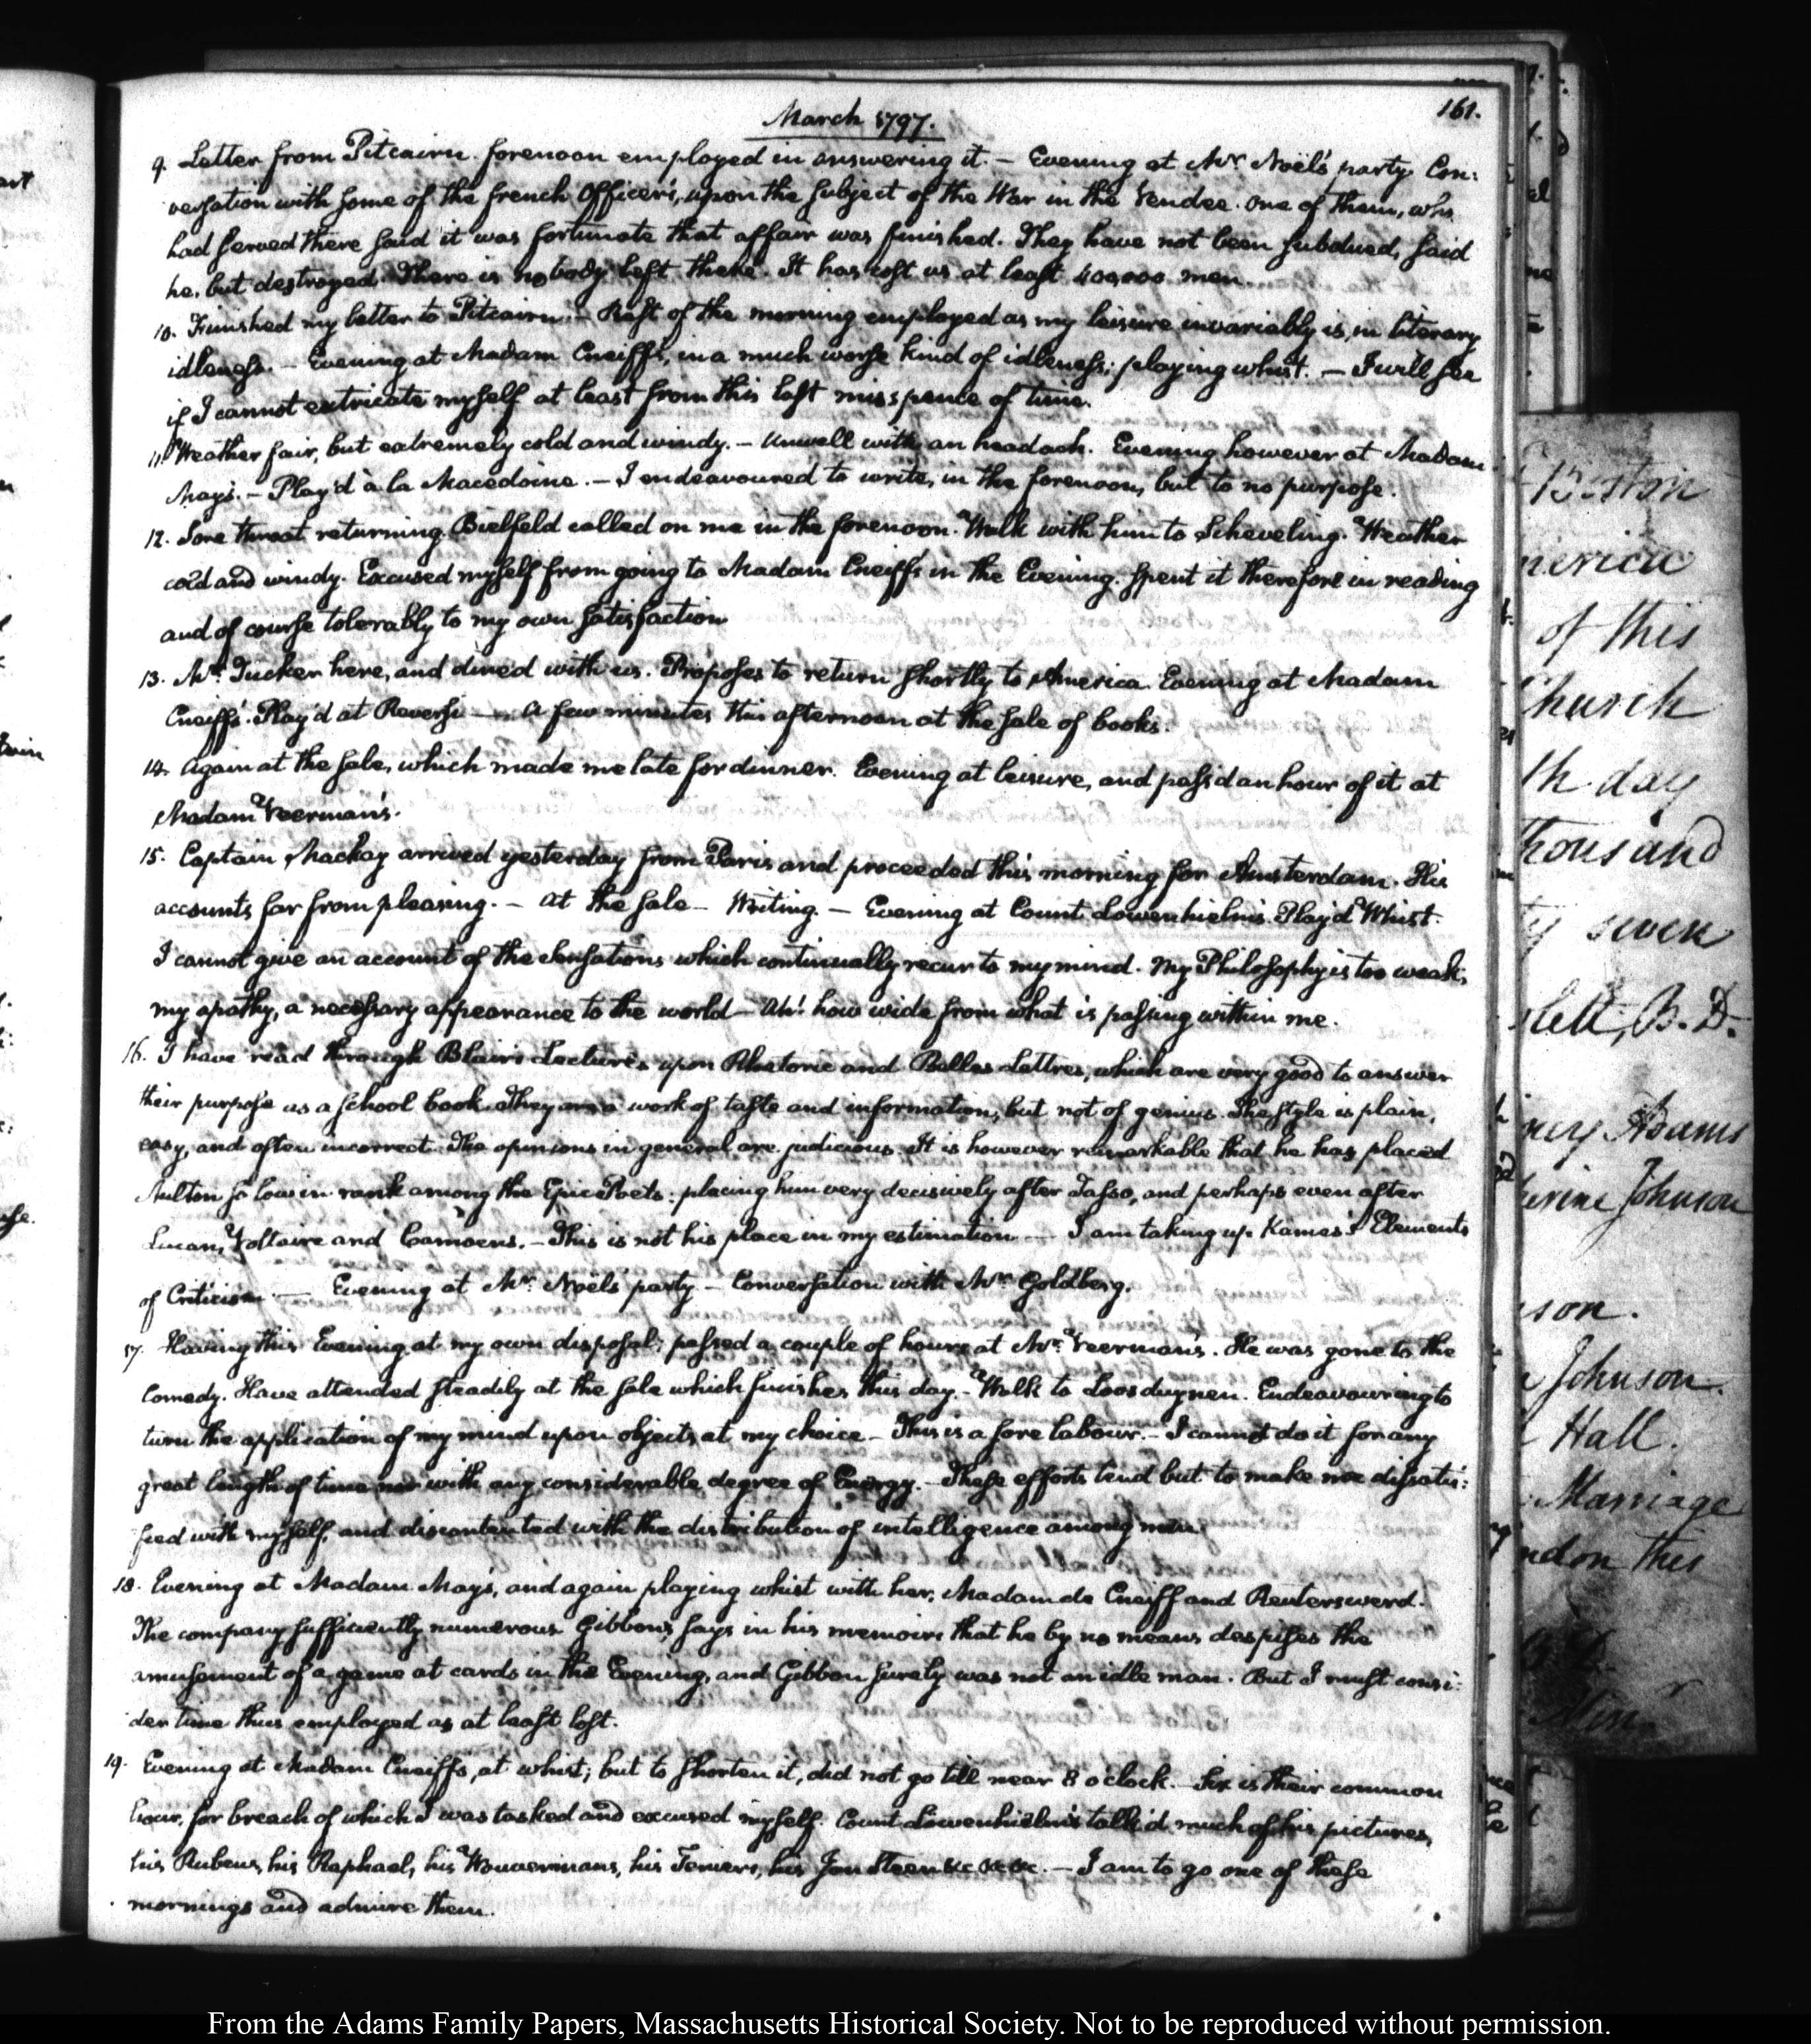 March 1797.
161.
9. Letter from Pitcairn. forenoon employed in answering it. — Evening at Mr. Noël's party. Con:
versation with some of the french Officers, upon the subject of the War in the Vendee. One of them, who
had served there said it was fortunate that affair was finished. They have not been subdued, said
he, but destroyed. There is nobody left there. It has cost us at least 400,000 men.
10. Finished my letter to Pitcairn. — Rest of the morning employed as my leisure invariably is, in literary
idleness. — Evening at Madam Cneiff's, in a much worse kind of idleness; playing whist. — I will see
if I cannot extricate myself at least from this last misspence of time.
11. Weather fair, but extremely cold and windy. — Unwell with an headach. Evening however at Madam
May's. — Play'd à la Macedoine. — I endeavoured to write, in the forenoon, but to no purpose.
12. Sore throat returning. Bielfeld called on me in the forenoon. Walk with him to Scheveling. Weather
cold and windy. Excused myself from going to Madam Cneiff's in the Evening. Spent it therefore in reading
and of course tolerably to my own satisfaction
13. Mr. Tucker here, and dined with us. Proposes to return shortly to America. Evening at Madam
Cneiff's. Play'd at Reversi — A few minutes this afternoon at the sale of books.
14. Again at the sale, which made me late for dinner. Evening at leisure, and pass'd an hour of it at
Madam Veerman's.
15. Captain Mackay arrived yesterday from Paris and proceeded this morning for Amsterdam. His
accounts far from pleasing. — At the sale — Writing. — Evening at Count Lowenhielm's. Play'd Whist.
I cannot give an account of the sensations which continually recur to my mind. My Philosophy is too weak;
my apathy, a necessary appearance to the world — Ah! how wide from what is passing within me.
16. I have read through Blair's Lectures upon Rhetoric and Belles Lettres, which are very good to answer
their purpose as a school book. They are a work of taste and information, but not of genius. The style is plain,
easy, and often incorrect. The opinions in general are judicious. It is however remarkable that he has placed
Milton so low in rank among the Epic Poets: placing him very decisively after Tasso, and perhaps even after
Lucan, Voltaire and Camoens. — This is not his place in my estimation — I am taking up Kames's Elements
of Criticism. — Evening at Mr. Noël's party — Conversation with Mr. Goldberg.
17. Having this Evening at my own disposal; passed a couple of hours at Mr. Veerman's. He was gone to the
Comedy. Have attended steadily at the sale which finishes this day. — Walk to Loosduynen. Endeavouring to
turn the application of my mind upon objects at my choice — This is a sore labour. — I cannot do it for any
great length of time nor with any considerable degree of Energy. — These efforts tend but to make me dissatis:
fied with myself, and discontented with the distribution of intelligence among men.
18. Evening at Madam May's, and again playing whist with her, Madam de Cneiff and Reuterswerd.
The company sufficiently numerous. Gibbon says in his memoirs that he by no means despises the
amusement of a game at cards in the Evening, and Gibbon surely was not an idle man. But I must consi:
der time thus employed as at least lost.
19. Evening at Madam Cneiff's, at whist; but to shorten it, did not go till near 8 o'clock. Six is their common
hour, for breach of which I was tasked and excused myself. Count Lowenhielm talk'd much of his pictures,
his Rubens, his Raphael, his Wouvermans, his Teniers, his Jan Steen &c &c &c. — I am to go one of these
mornings and admire them.
Boston
merica
of this
Church
th day
thousand
ty seven
lett, B. D.
ncy Adams
herine Johnson
son.
Johnson.
Hall.
Marriage
ndon this
Min
From the Adams Family Papers, Massachusetts Historical Society. Not to be reproduced without permission.